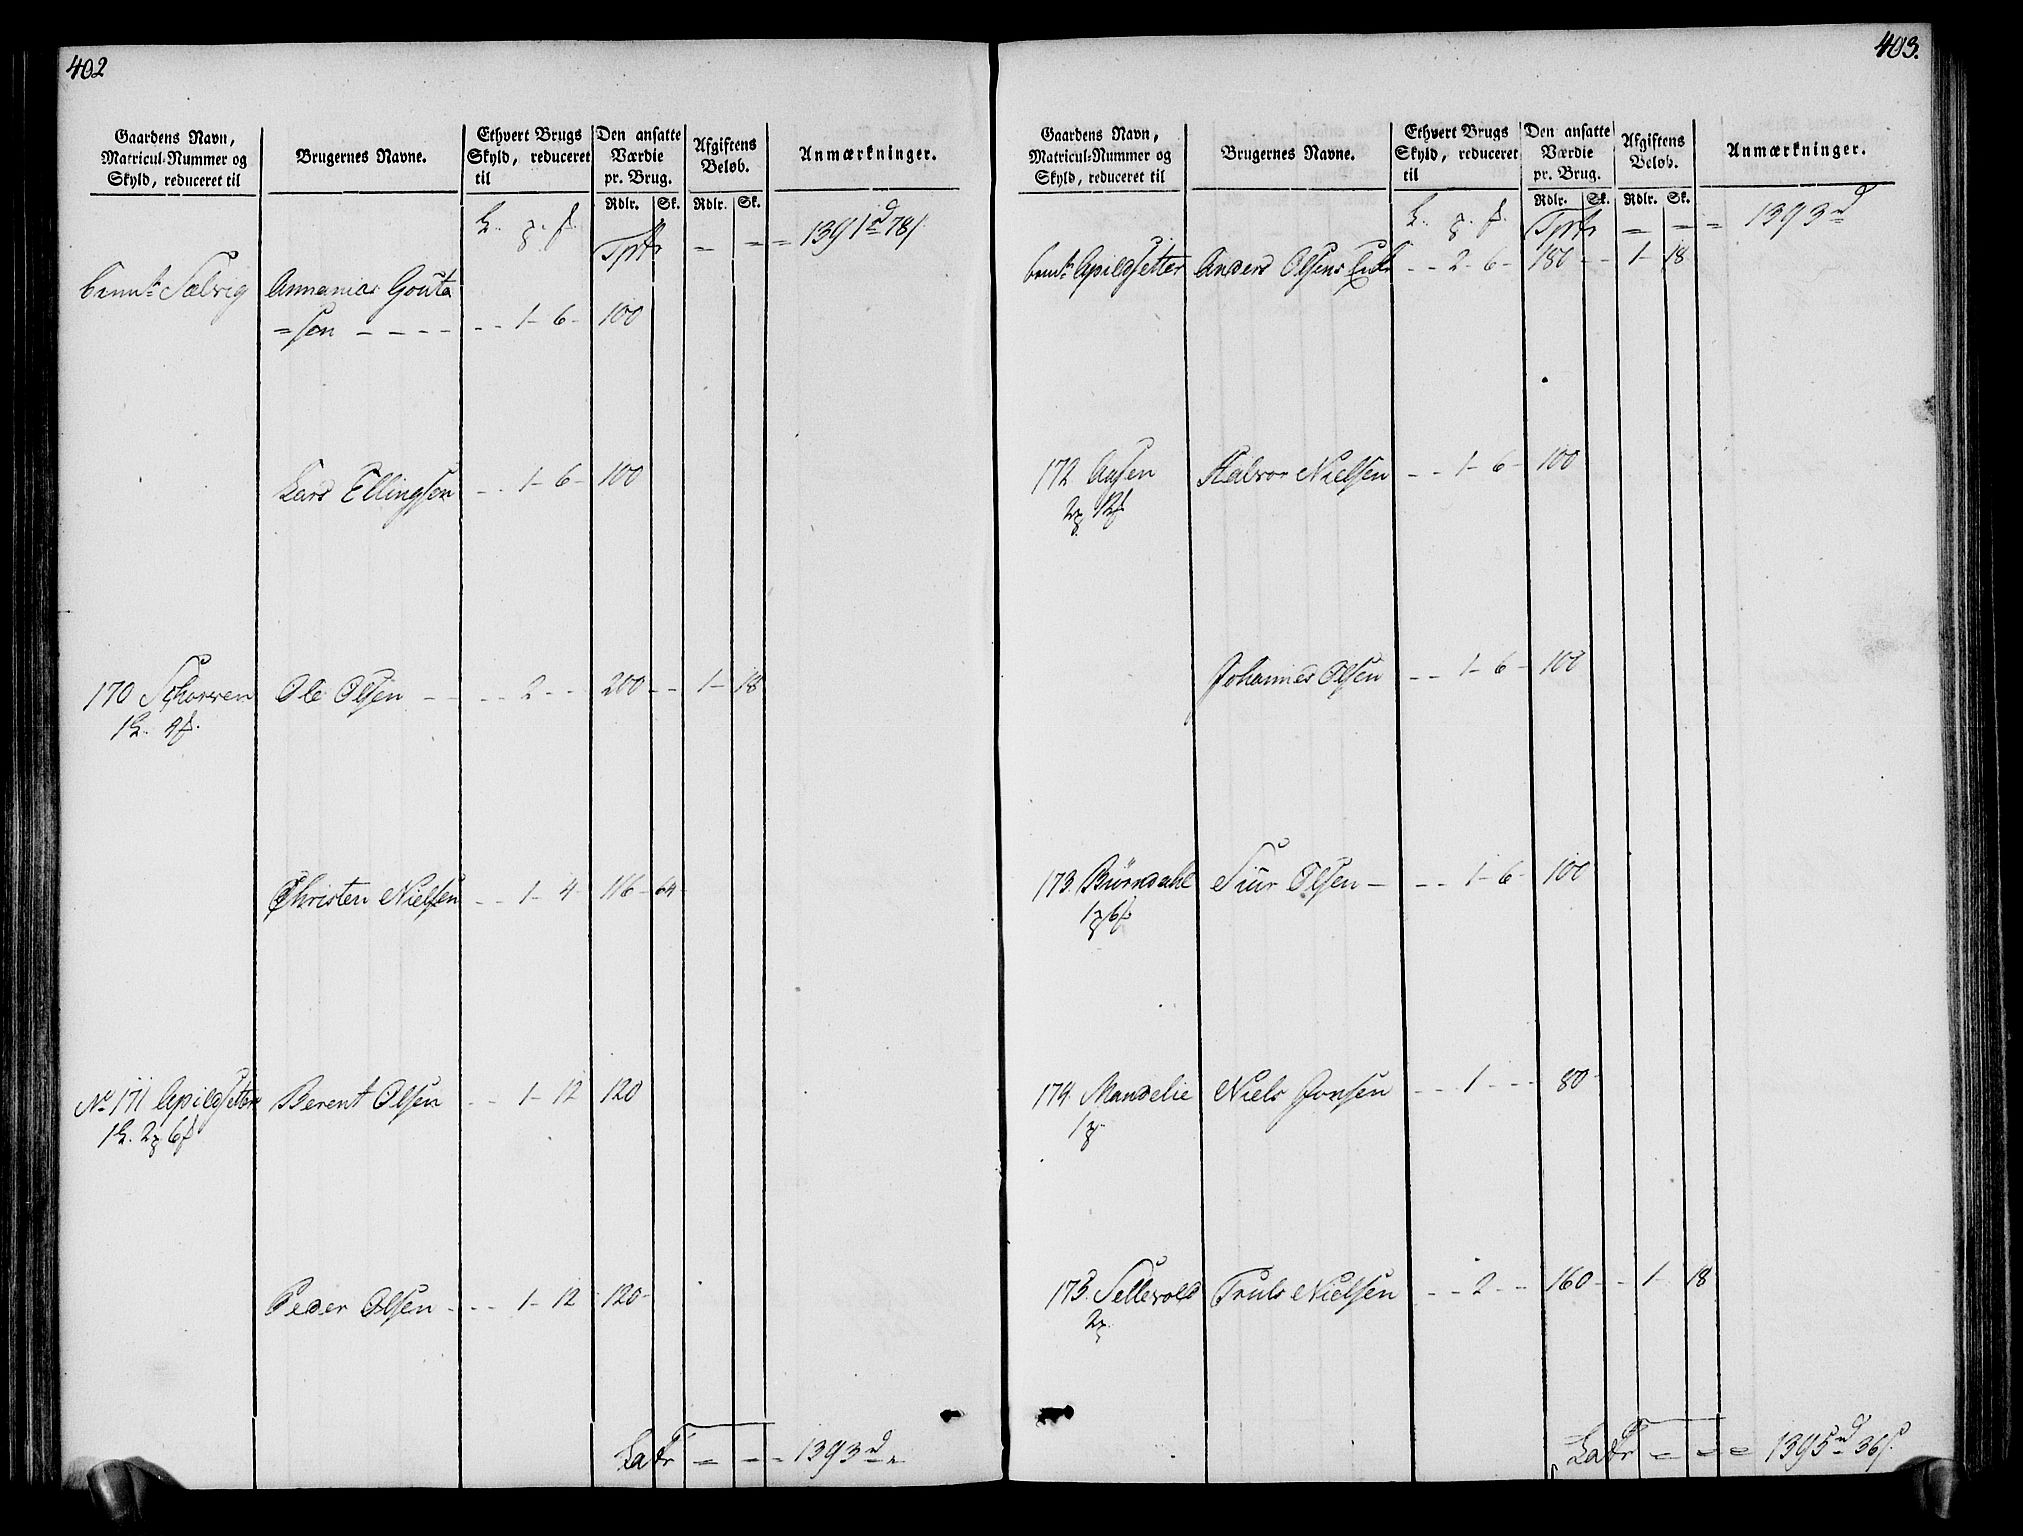 402
Gaardens Navn, Matricul-Nummer og Skyld, reduceret til
Brugernes Navne.
Ethvert Brugs Skyld, reduceret til
Den ansatte Værdie pr. Brug.
Afgiftens Beløb.
Anmærkninger.
Rdlr. Sk. Rdlr. Sk.
Tprt = = = 1391 d 78 s.
bemte Salvig Annanias Gouta
=sen - - - - - - 1- 6- 100
Lars Ellingsen - - 1- 6- 100
170 Schorven Ole Olsen - - - 2 - - 200 - - 1- 18
1 L. 4 s.
Christen Nielsen - - 1- 4- 116- 64-
No 171 Apildsetter Berent Olsen - - 1- 12 120
1 L. 2 6 s
Peder Olsen - - - 1- 12 120-
Latr = = = 1393 d =
403.
Gaardens Navn, Matricul-Nummer og Skyld, reduceret til
Brugernes Navne.
Ethvert Brugs Skyld, reduceret til
Den ansatte Værdie pr. Brug.
Afgiftens Beløb.
Anmærkninger.
Rdlr. Sk. Rdlr. Sk.
Tprt = = = 1393 d
bemte Apildsetter Anders Olsens Enke - - 2- 6- 180 - - 1- 18
172 Aasen Halvor Nielsen - - 1- 6- 100
2 12 s
Johannes Olsen - - 1- 6- 100
173. Biörndahl Siur Olsen - - - 1- 6- 100
1 6 s
174. Mandelie Niels Jonsen - - 1 - - - 80-
1
175. Sellevold Truls Nielsen - - 2 - - 160 - - 1- 18
2
Latr = = = 1395 d 36 s.